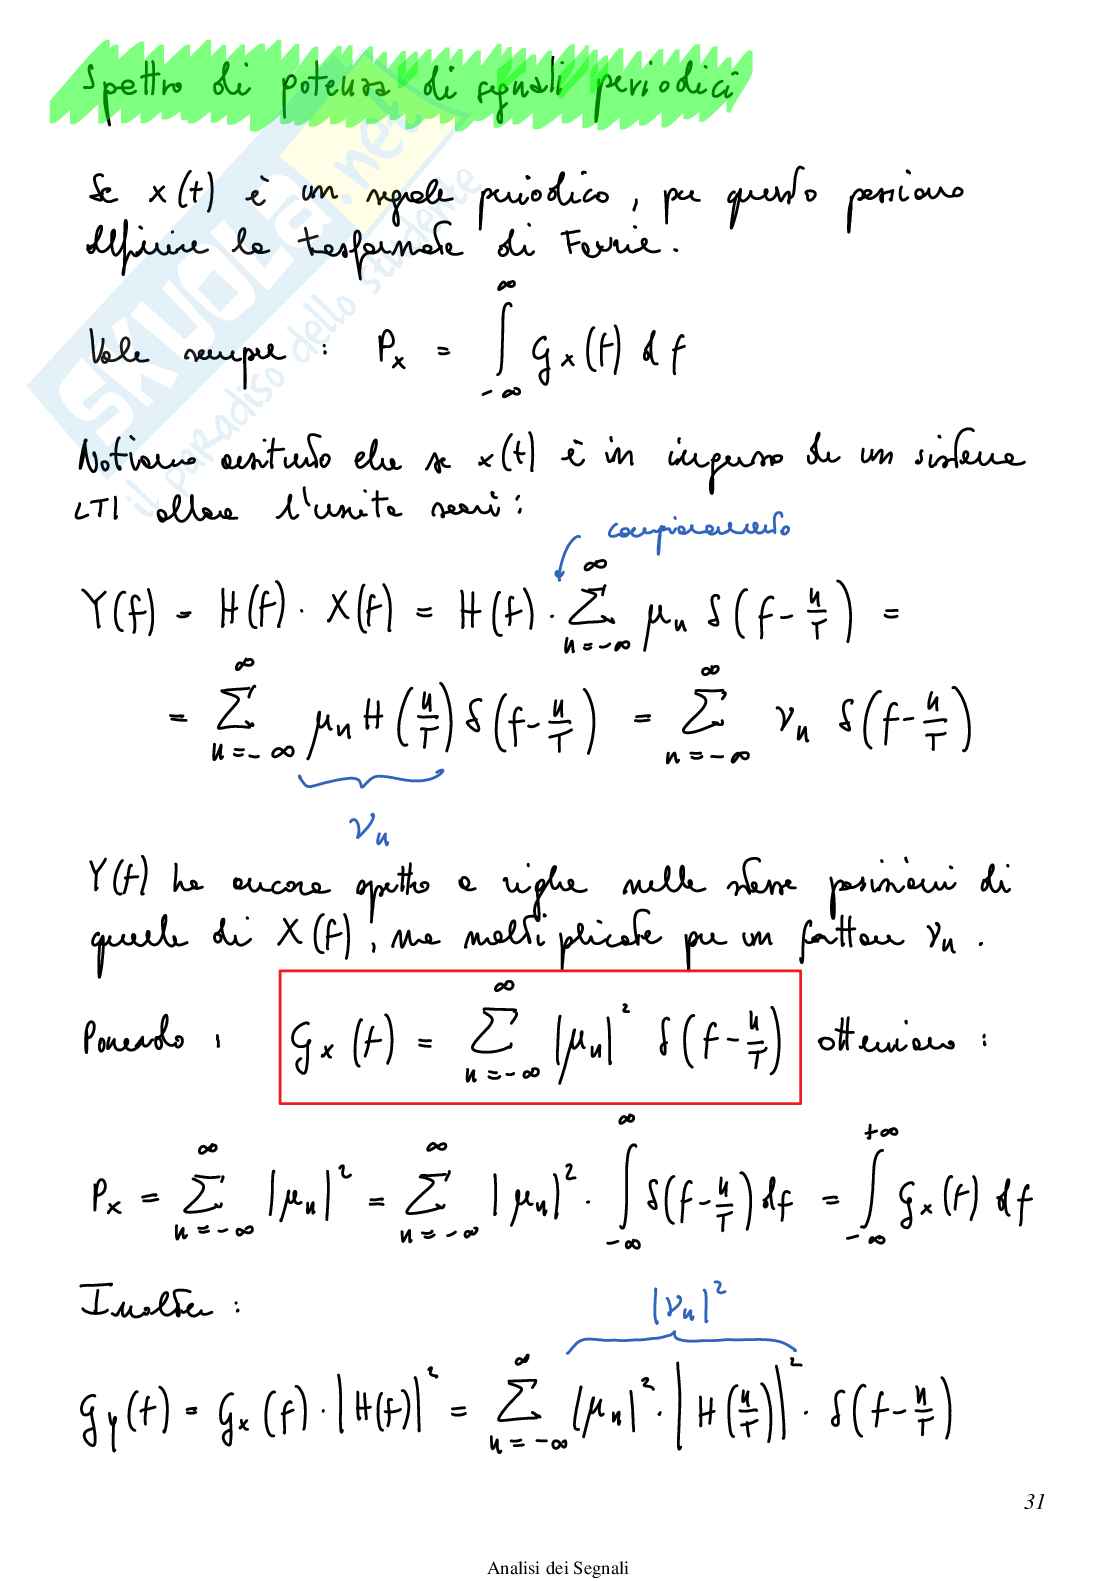 Spettro di potenza di segnali periodici
Se x(t) è un segnale periodico, per questo possiamo
definire la trasformata di Fourier.
Vale sempre : Pₓ = ∫_{-∞}^{∞} Gₓ(f) df
Notiamo anzitutto che se x(t) è in ingresso da un sistema
LTI allora l'uscita sarà :
campionamento
Y(f) = H(f) · X(f) = H(f) · Σ_{n=-∞}^{∞} μₙ δ(f - n/T) =
= Σ_{n=-∞}^{∞} μₙ H(n/T) δ(f - n/T) = Σ_{n=-∞}^{∞} νₙ δ(f - n/T)
νₙ
Y(f) ha ancora spettro a righe nelle stesse posizioni di
quelle di X(f), ma moltiplicate per un fattore νₙ.
Ponendo : Gₓ(f) = Σ_{n=-∞}^{∞} |μₙ|² δ(f - n/T) otteniamo :
Pₓ = Σ_{n=-∞}^{∞} |μₙ|² = Σ_{n=-∞}^{∞} |μₙ|² · ∫_{-∞}^{∞} δ(f - n/T) df = ∫_{-∞}^{+∞} Gₓ(f) df
Inoltre :
|νₙ|²
G_y(f) = Gₓ(f) · |H(f)|² = Σ_{n=-∞}^{∞} |μₙ|² · |H(n/T)|² · δ(f - n/T)
SKUOLA.net
il paradiso dello studente
31
Analisi dei Segnali